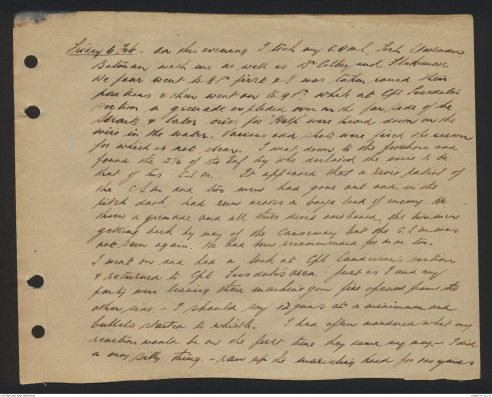 Friday 6 Feb. On this evening I took my C.S.M.,
Bateman with me as well as Dr Colley and Blakemore
We four went to first & I was taken round their
positions & then went on to 9 Pl. While at Cpl Tuesdales
section a grenade exploded over on the far side of the
Straits & later cries for "Help" were heard down on the
wire in the water. Various odd shots were fired the reason
for which is not clear. I went down to the foreshore and
found the 2i/c of the Inf Coy who declared the voice to be
that of his C.S.M. It appeared that a recce patrol of
the C.S.M and two men had gone out and in the
pitch dark, had run across a barge load of enemy. He
threw a grenade and all three dived overboard, the two men
getting back by way of the Causeway but the C.S.M was
not seen again. He had been recommended for M.M. too.
I went on and had a look at Cpl section
& returned to Cpl Tuesdales area. Just as I and my
party were leaving there machine gun fire opened from the
other side, - I should say 12 guns at a minimum and
bullets started to whistle. I had often wondered what my
reaction would be on the first time they came my way. - I did
a very silly thing - ran up the road for 100 yards